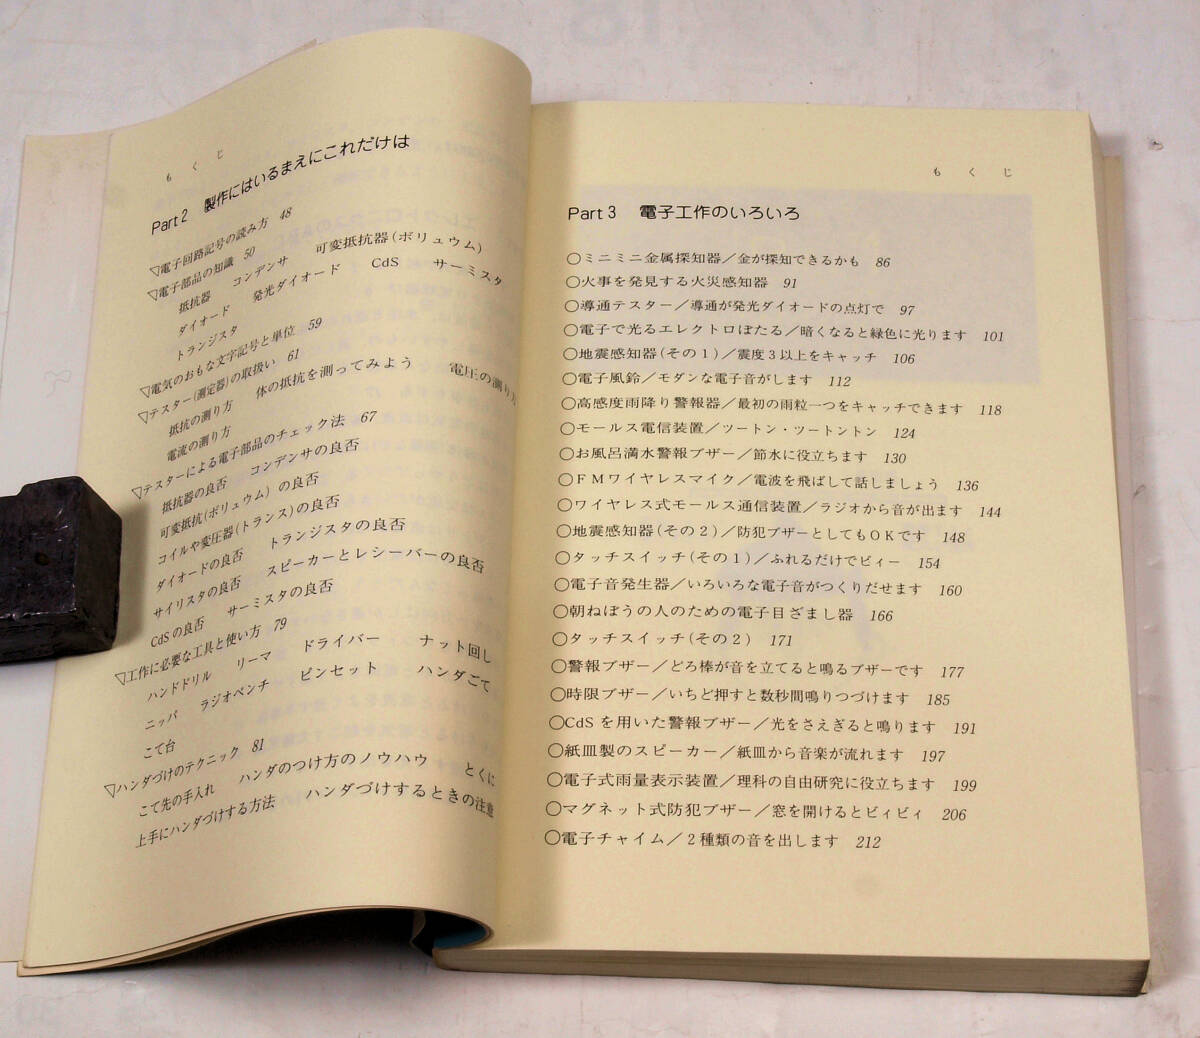 もくじ
Part 2 製作にはいるまえにこれだけは
▽電子回路記号の読み方 48
▽電子部品の知識 50
抵抗器 コンデンサ 可変抵抗器(ボリュウム)
ダイオード 発光ダイオード CdS サーミスタ
トランジスタ
▽電気のおもな文字記号と単位 59
▽テスター(測定器)の取扱い 61
抵抗の測り方 体の抵抗を測ってみよう 電圧の測り方
電流の測り方
▽テスターによる電子部品のチェック法 67
抵抗器の良否 コンデンサの良否
可変抵抗(ボリュウム)の良否
コイルや変圧器(トランス)の良否
ダイオードの良否 トランジスタの良否
サイリスタの良否 スピーカーとレシーバーの良否
CdSの良否 サーミスタの良否
▽工作に必要な工具と使い方 79
ハンドドリル リーマ ドライバー ナット回し
ニッパ ラジオペンチ ピンセット ハンダごて
こて台
▽ハンダづけのテクニック 81
こて先の手入れ ハンダのつけ方のノウハウ とくに
上手にハンダづけする方法 ハンダづけするときの注意
もくじ
Part 3 電子工作のいろいろ
○ミニミニ金属探知器/金が探知できるかも 86
○火事を発見する火災感知器 91
○導通テスター/導通が発光ダイオードの点灯で 97
○電子で光るエレクトロぼたる/暗くなると緑色に光ります 101
○地震感知器(その1)/震度3以上をキャッチ 106
○電子風鈴/モダンな電子音がします 112
○高感度雨降り警報器/最初の雨粒一つをキャッチできます 118
○モールス電信装置/ツートン・ツートントン 124
○お風呂満水警報ブザー/節水に役立ちます 130
○FMワイヤレスマイク/電波を飛ばして話しましょう 136
○ワイヤレス式モールス通信装置/ラジオから音が出ます 144
○地震感知器(その2)/防犯ブザーとしてもOKです 148
○タッチスイッチ(その1)/ふれるだけでビィー 154
○電子音発生器/いろいろな電子音がつくりだせます 160
○朝ねぼうの人のための電子目ざまし器 166
○タッチスイッチ(その2) 171
○警報ブザー/どろ棒が音を立てると鳴るブザーです 177
○時限ブザー/いちど押すと数秒間鳴りつづけます 185
○CdSを用いた警報ブザー/光をさえぎると鳴ります 191
○紙皿製のスピーカー/紙皿から音楽が流れます 197
○電子式雨量表示装置/理科の自由研究に役立ちます 199
○マグネット式防犯ブザー/窓を開けるとビィビィ 206
○電子チャイム/2種類の音を出します 212